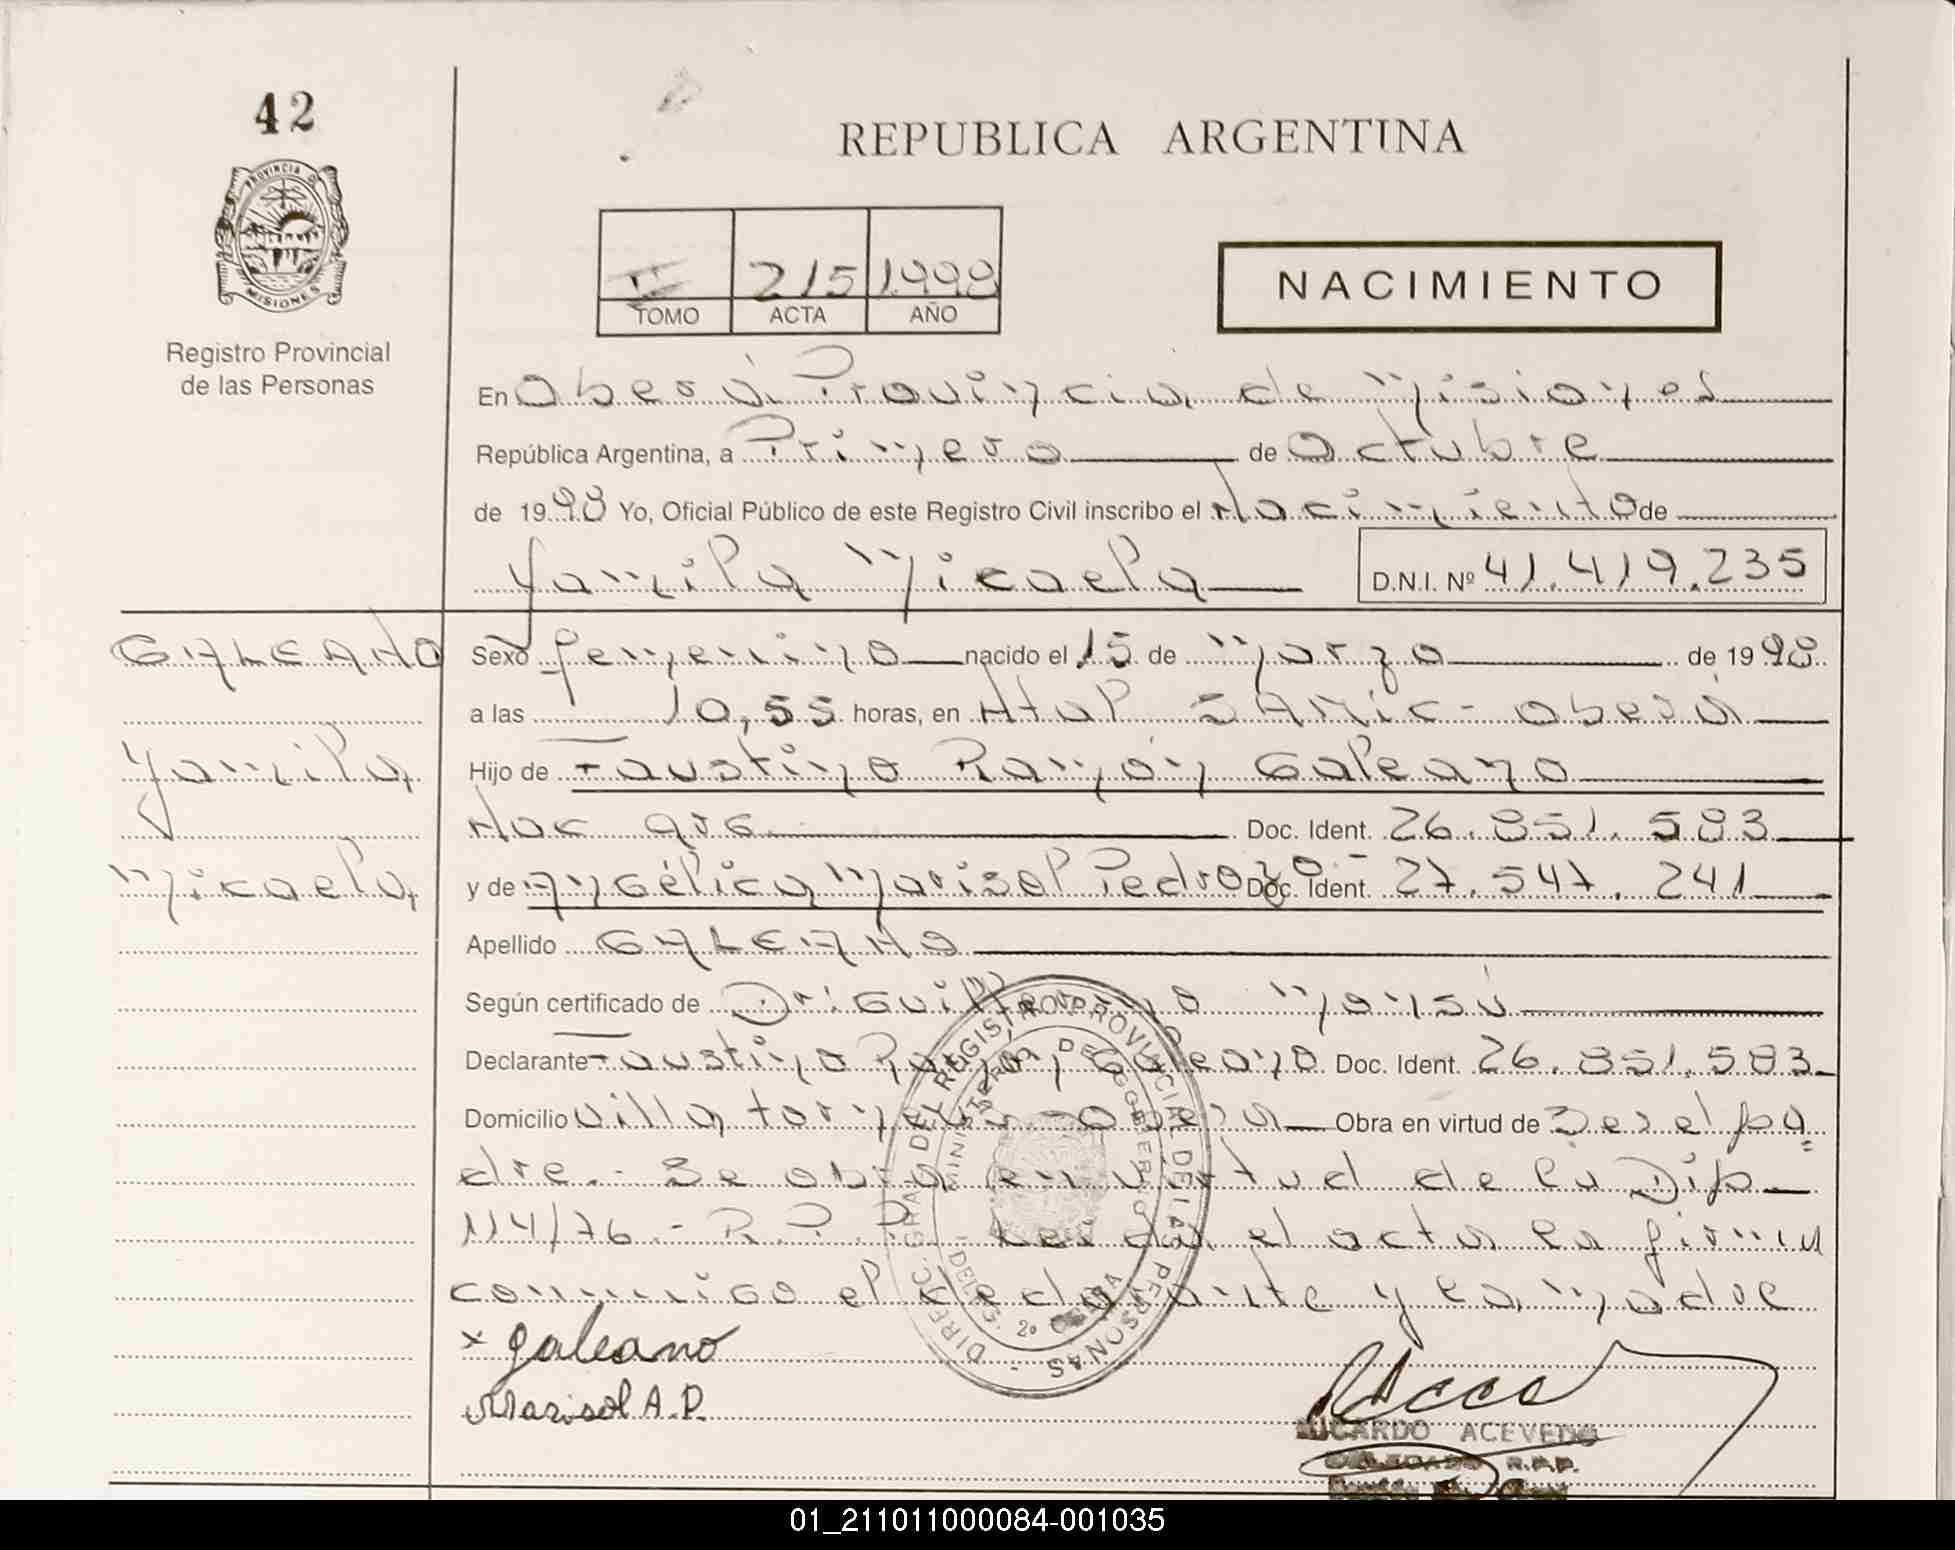 42
REPUBLICA ARGENTINA
PROVINCIA D
MISIONES
II 215 1998
TOMO ACTA AÑO
NACIMIENTO
Registro Provincial
de las Personas
En Oberá Provincia de Misiones
República Argentina, a Primero de Octubre
de 1998 Yo, Oficial Público de este Registro Civil inscribo el Nacimiento de
Yamila Micaela D.N.I. Nº 41.419.235
GALEANO Sexo femenino nacido el 15 de Marzo de 1998
a las 10,55 horas, en Htal SAMIC - Oberá
Yamila Hijo de Faustino Ramón Galeano
Nac arg Doc. Ident. 26.851.583
Micaela y de Angélica Marisol Pedrozo - Doc. Ident. 27.547.241
Apellido GALEANO
Según certificado de Dr. Guillermo Mansú
Declarante Faustino Ramón Galeano Doc. Ident. 26.851.583
Domicilio Villa torneus - Oberá Obra en virtud de Ser el pa
dre.- Se obra en virtud de la Dip
114/76.- R.P.P. Leida el acta la firman
conmigo el declarante y la madre
x Galeano
Marisol A.P.
DIREC. GRAL DEL REGISTRO PROVINCIAL DE LAS PERSONAS
MINISTERIO DE GOBIERNO
RICARDO ACEVEDO
DELEGADO R.P.P.
01_211011000084-001035